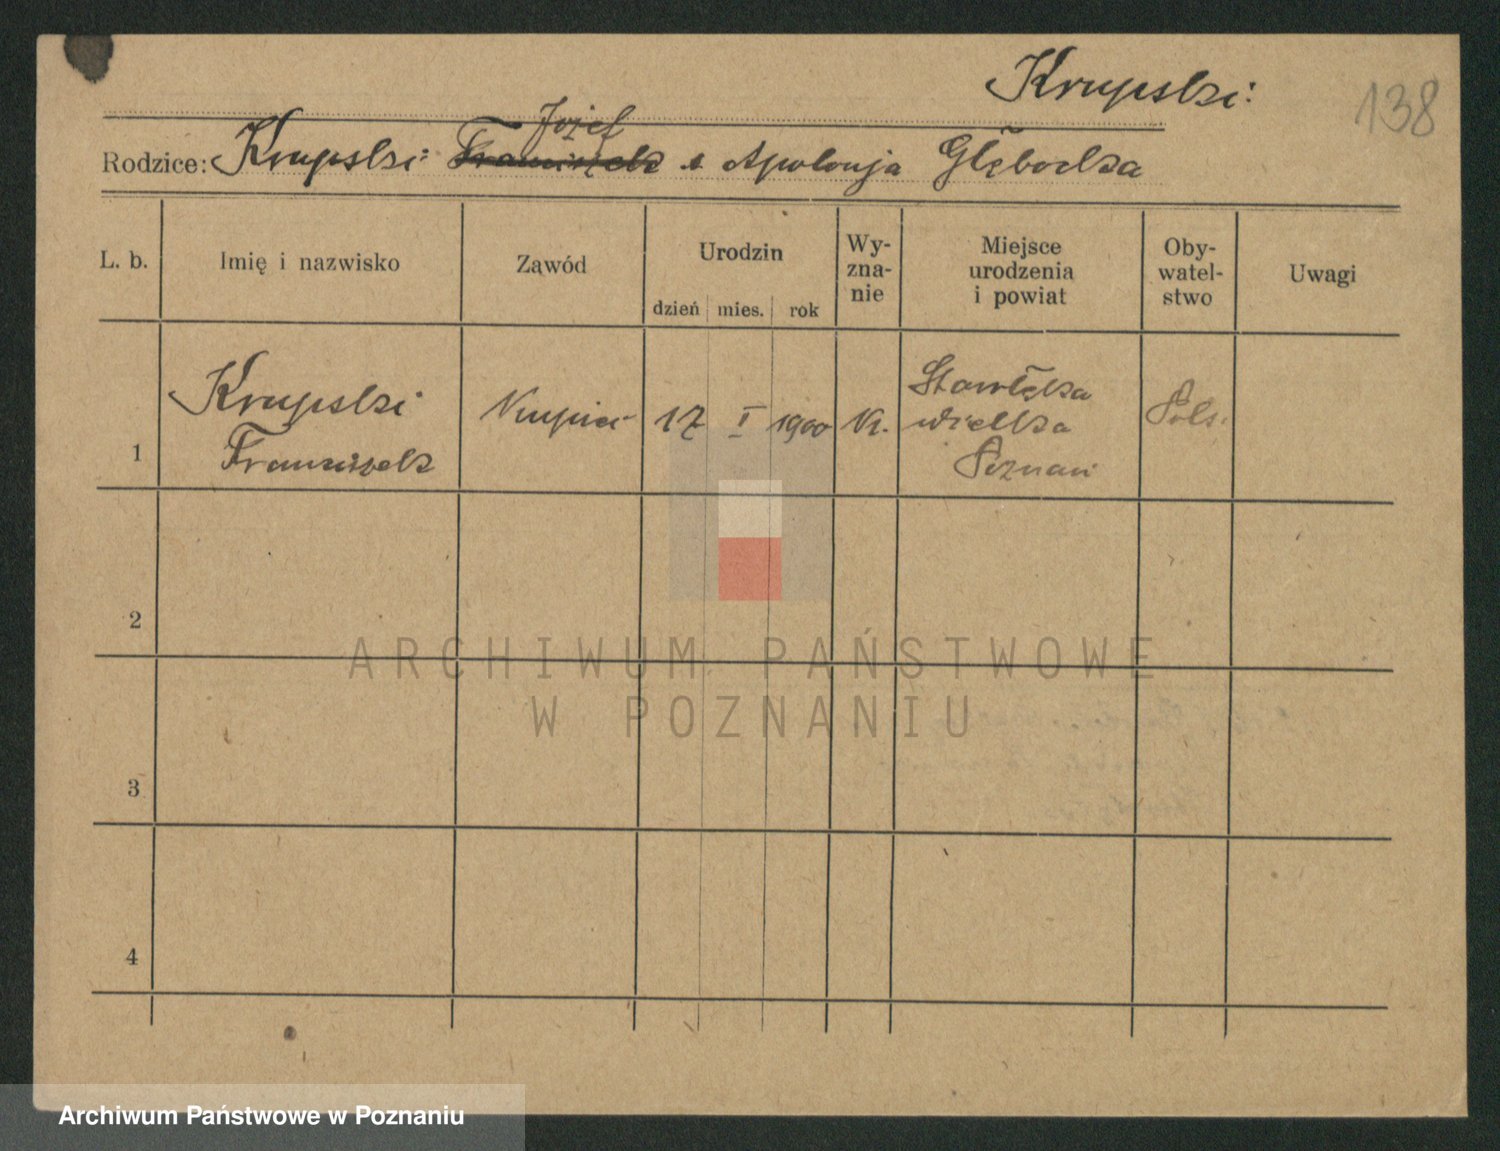 Krupski
138
Józef
Rodzice: Krupski Franciszek i Apolonja Głębocka
L. b.
Imię i nazwisko
Zawód
Urodzin
dzień mies. rok
Wy-
zna-
nie
Miejsce
urodzenia
i powiat
Oby-
watel-
stwo
Uwagi
1
Krupski
Franciszek
Kupiec
17 I 1900
Kt.
wielka
Poznań
Pols.
2
3
4
ARCHIWUM PAŃSTWOWE
W POZNANIU
Archiwum Państwowe w Poznaniu